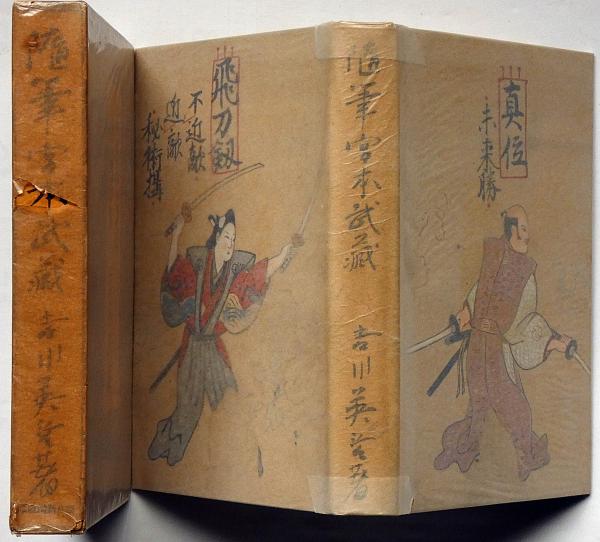 隨筆宮本武蔵
吉川英治著
飛刀劔
不近敵
近敵
秘術構
隨筆宮本武蔵
吉川英治著
真位
未来勝